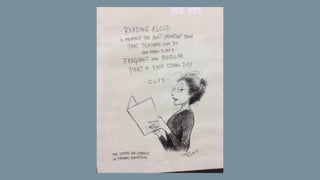 READING ALOUD
IS PROBABLY THE MOST IMPORTANT THING
THAT TEACHERS CAN DO
AND NEEDS TO BE A
FREQUENT AND REGULAR
PART OF EACH SCHOOL DAY
- CLPE -
THE CENTRE FOR LITERACY
IN PRIMARY EDUCATION